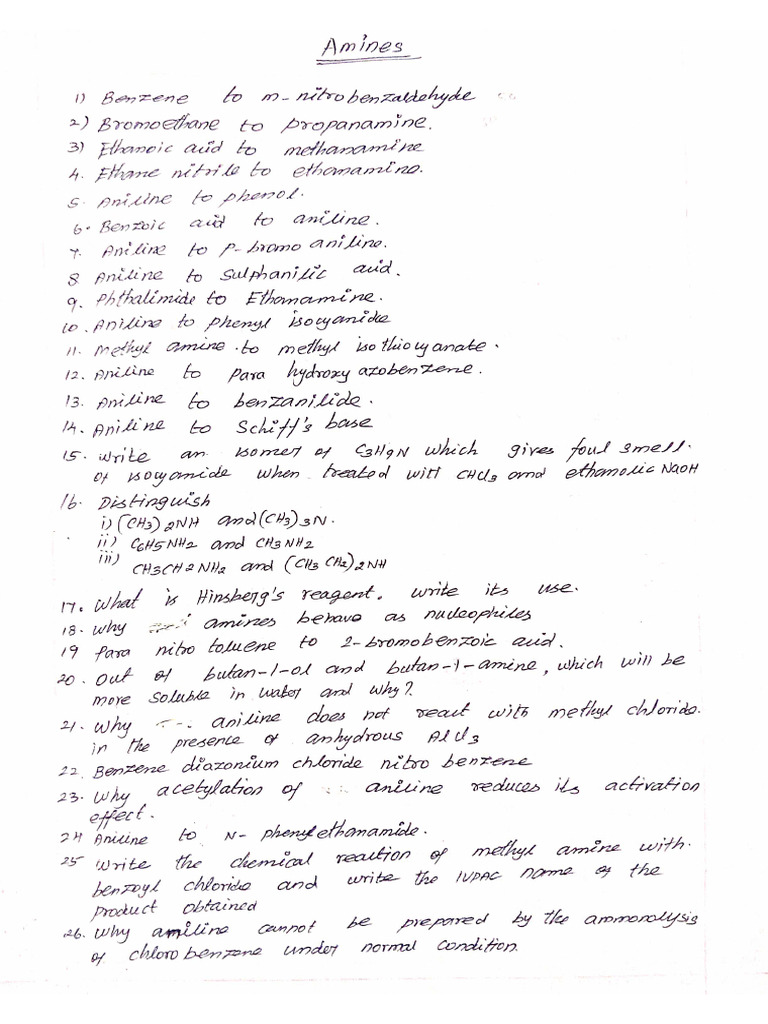 Amines
1) Benzene to m-nitrobenzaldehyde
2) Bromoethane to propanamine.
3) Ethanoic acid to methanamine
4. Ethane nitrile to ethanamine.
5. Aniline to phenol.
6. Benzoic acid to aniline.
7. Aniline to p-bromo aniline.
8. Aniline to sulphanilic acid.
9. Phthalimide to Ethanamine.
10. Aniline to phenyl isocyanide
11. Methyl amine to methyl isothiocyanate.
12. Aniline to para hydroxy azobenzene.
13. Aniline to benzanilide.
14. Aniline to Schiff's base
15. Write an isomer of C3H9N which gives foul smell.
of isocyanide when treated with CHCl3 and ethanolic NaOH
16. Distinguish
i) (CH3)2NH and (CH3)3N.
ii) C6H5NH2 and CH3NH2
iii) CH3CH2NH2 and (CH3CH2)2NH
17. What is Hinsberg's reagent. Write its use.
18. Why amines behave as nucleophiles
19 Para nitro toluene to 2-bromobenzoic acid.
20. Out of butan-1-ol and butan-1-amine, which will be
more soluble in water and why?
21. Why aniline does not react with methyl chloride.
in the presence of anhydrous AlCl3
22. Benzene diazonium chloride nitro benzene
23. Why acetylation of aniline reduces its activation
effect.
24 Aniline to N-phenylethanamide.
25 Write the chemical reaction of methyl amine with.
benzoyl chloride and write the IUPAC name of the
product obtained
26. Why aniline cannot be prepared by the ammonolysis
of chlorobenzene under normal condition.